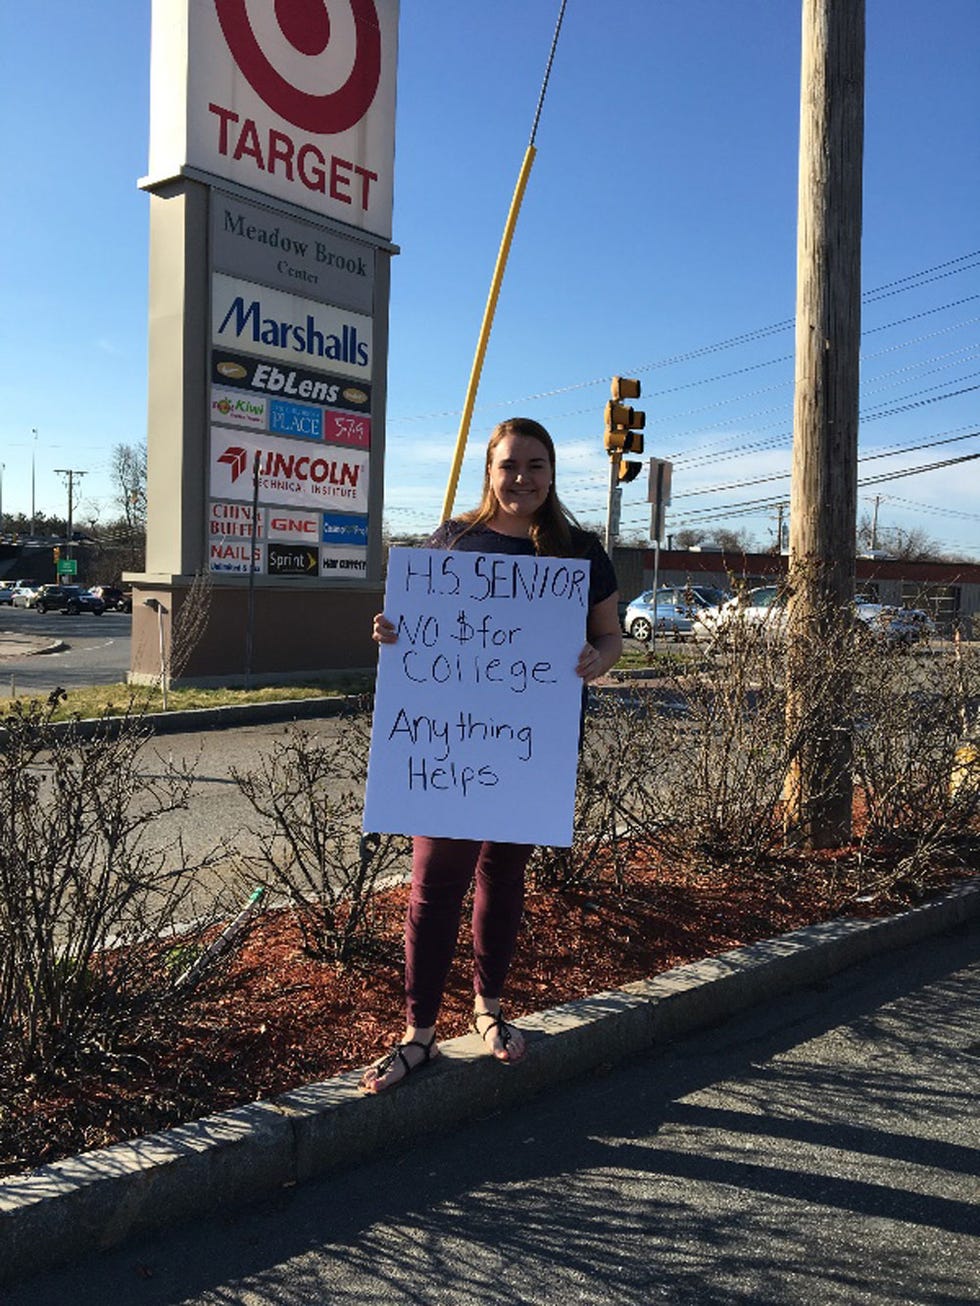 TARGET
Meadow Brook
Center
Marshalls
EbLens
Kiwi
PLACE
5·7·9
LINCOLN
TECHNICAL INSTITUTE
CHINA
BUFFET
GNC
NAILS
Sprint
Hair Cuttery
H.S. SENIOR
NO $ for
College
Anything
Helps